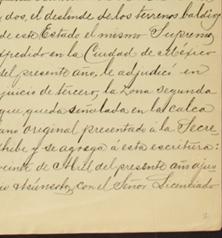 y dos, el deslinde de los terrenos baldíos
de este Estado el mismo Supremo
expedido en la Ciudad de México
del presente año, le adjudicó en
juicio de tercero, la Zona Segunda
que queda señalada en la calca
ano original presentado a la Secre
thebe y se agrega á esta escritura:
veinte de Abril del presente año ajus
con el Señor Licenciado